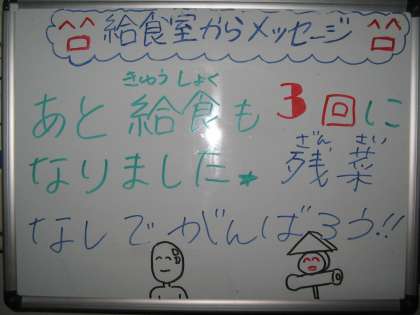 給食室からメッセージ
きゅうしょく
あと給食も3回に
ざん さい
なりました。残菜
なしでがんばろう!!